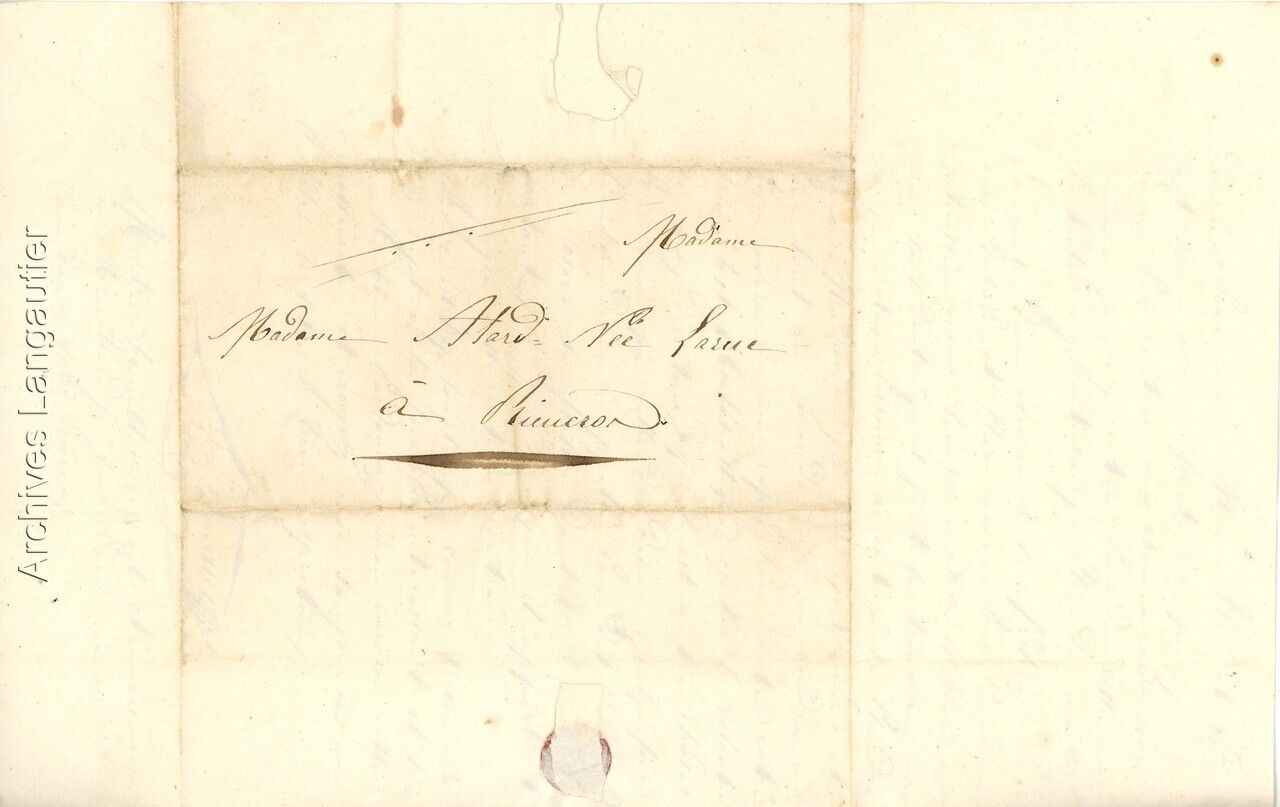 Madame
Madame Alard= Née Larue
à Rimeron
Archives Langautier